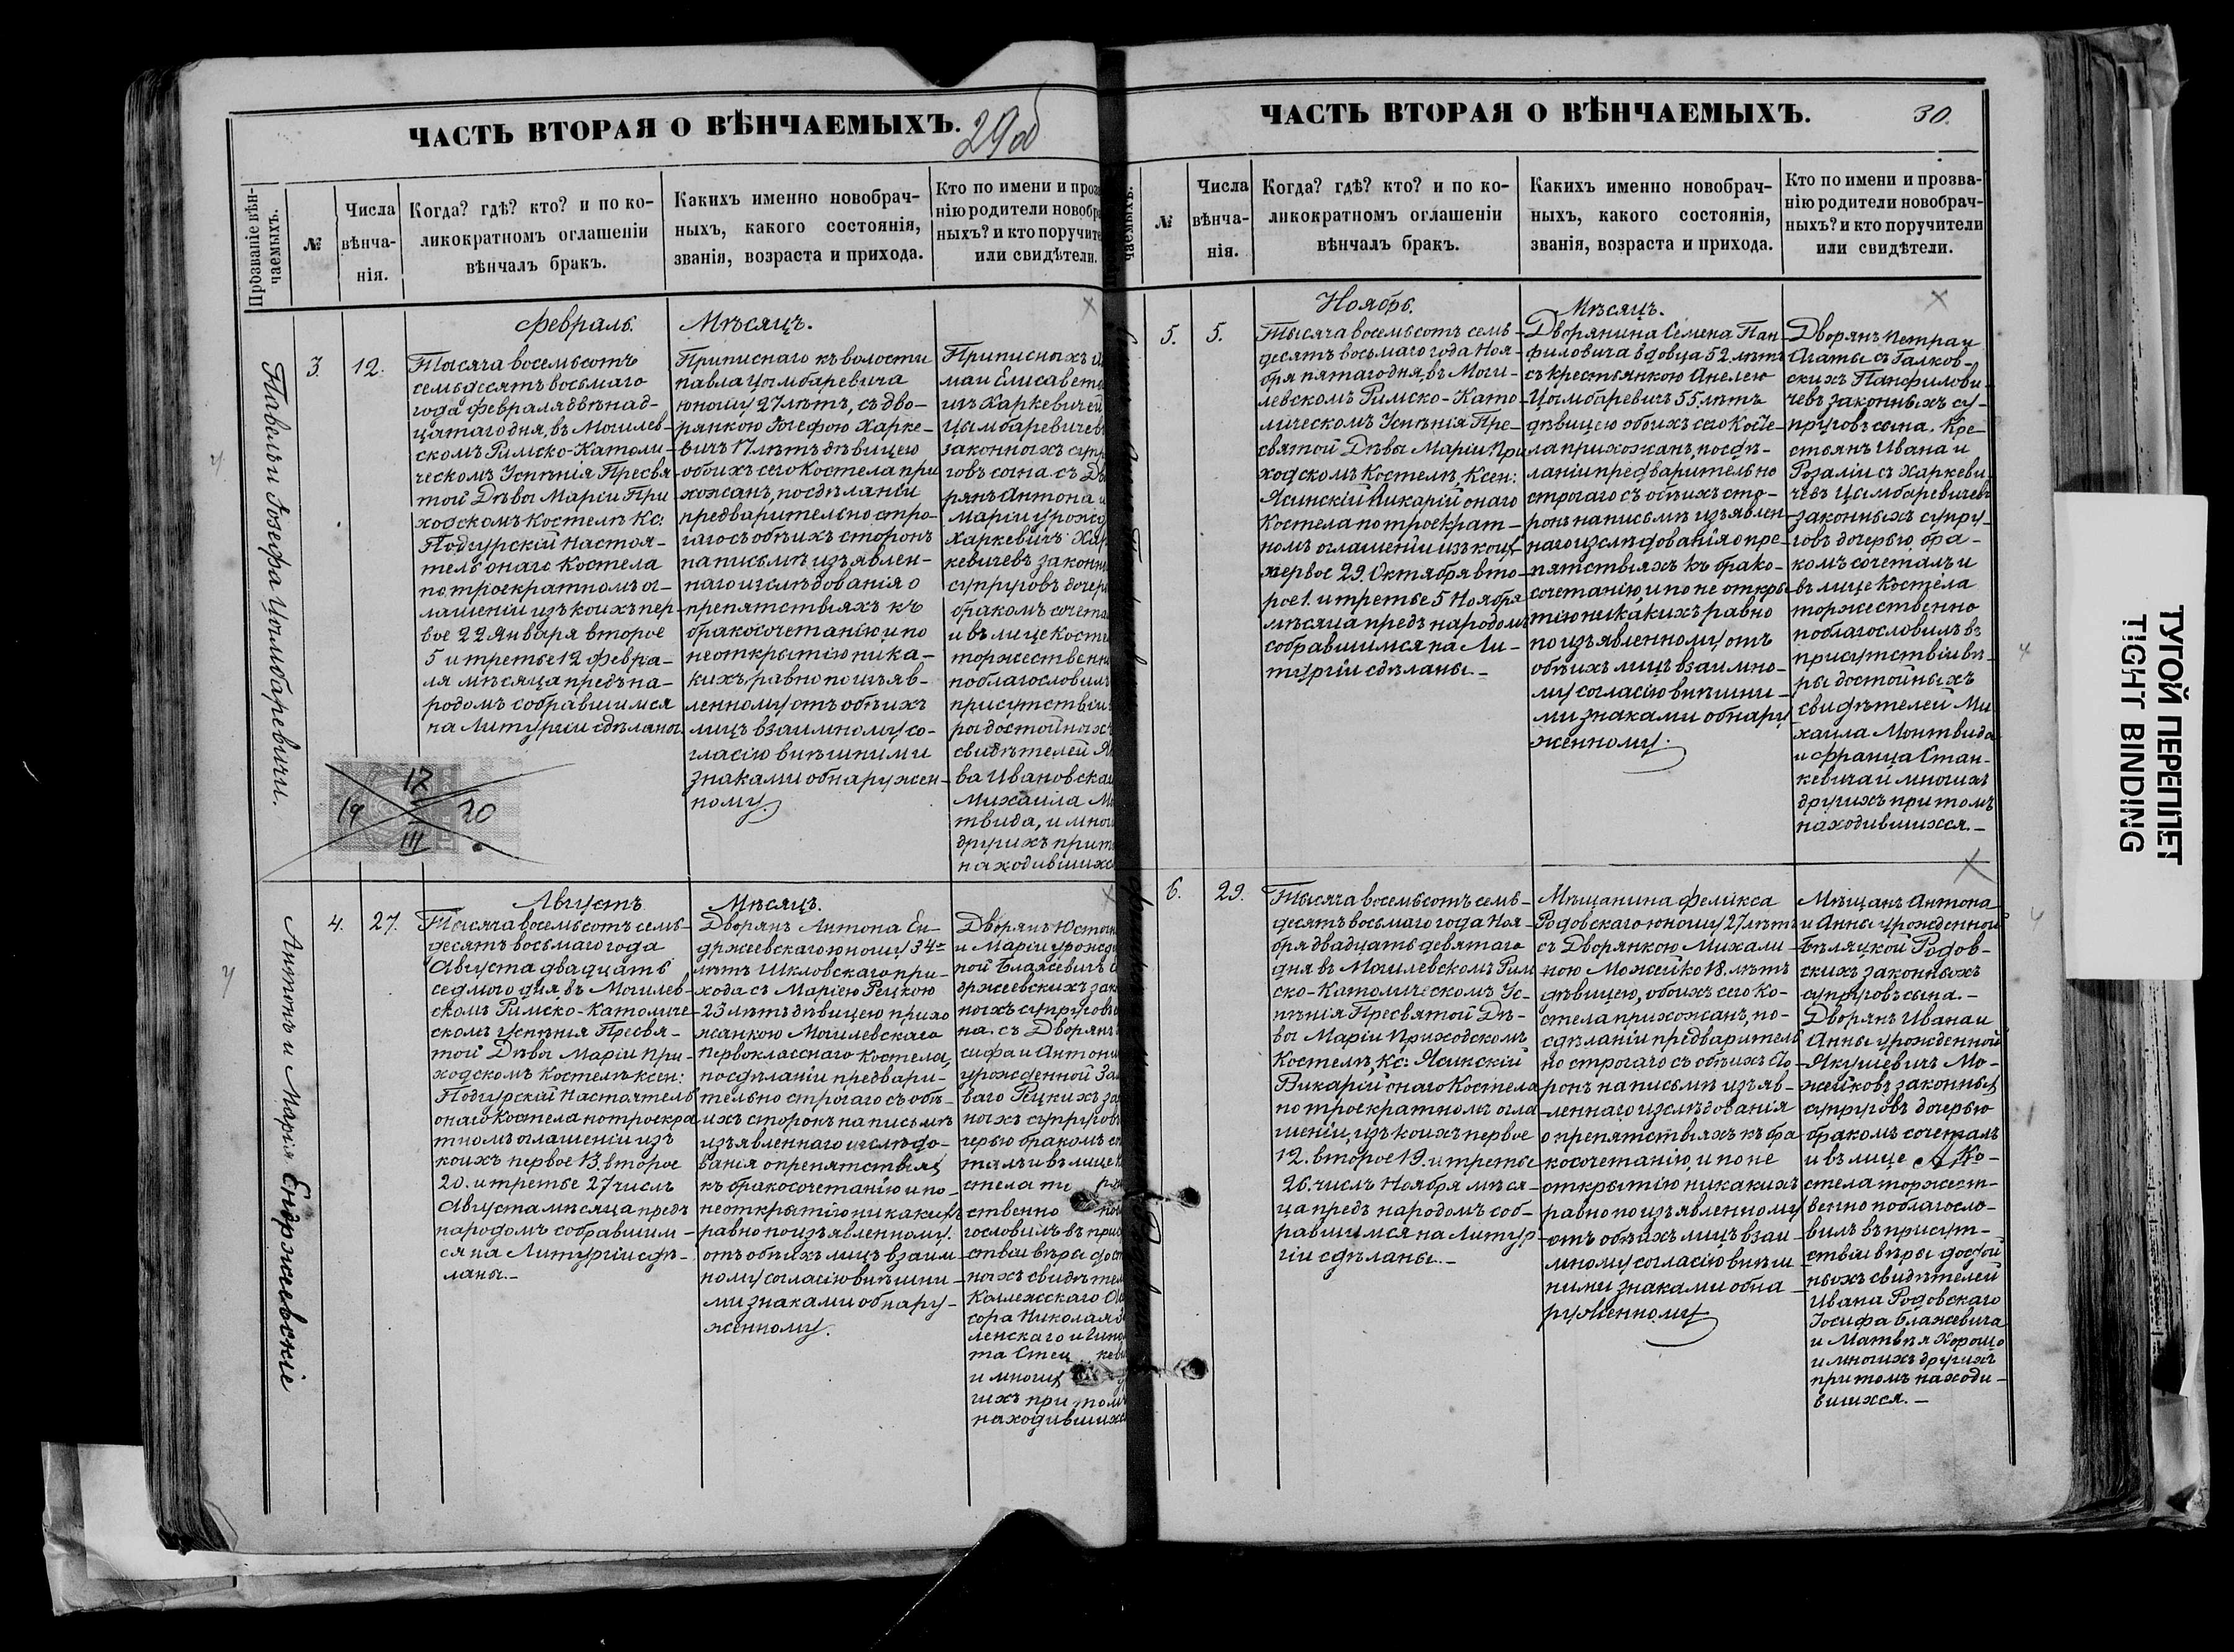 ЧАСТЬ ВТОРАЯ О ВѢНЧАЕМЫХЪ.
29об
Прозваніе вѣн-
чаемыхъ.
№
Числа
вѣнча-
нія.
Когда? гдѣ? кто? и по ко-
ликократномъ оглашеніи
вѣнчалъ бракъ.
Какихъ именно новобрач-
ныхъ, какого состоянія,
званія, возраста и прихода.
Кто по имени и
нію родители
ныхъ? и кто
или свидѣтели.
Павелъ и Іозефа Цымбаревичи.
3.
12.
Февраль.
Тысяча восемьсотъ
семьдесятъ восьмаго
года февраля двѣнад-
цятаго дня, въ Могилев-
скомъ Римско-Католи-
ческомъ Успѣнія Пресвя
той Дѣвы Маріи При
ходскомъ Костелѣ Кс:
Подгурскій Настоя-
тель онаго Костела
по троекратномъ ог-
лашеніи изъ коихъ пер-
вое 22 Января второе
5 и третье 12 Февра-
ля мѣсяца предъ на-
родомъ собравшимся
на Литургіи сдѣланы.
Мѣсяцъ.
Приписнаго къ волости
павла Цымбаревича
юношу 27 лѣтъ, съ дво-
рянкою Іозефою Харке-
вичъ 17 лѣтъ дѣвицею
обоихъ сего Костела при
хожанъ, по сдѣланіи
предварительно стро-
гаго съ обѣихъ сторонъ
на письмѣ изъявлен-
наго изслѣдованія о
препятствіяхъ къ
бракосочетанію и по
неоткрытію ника-
кихъ равно по изъяв-
ленному отъ обѣихъ
лицъ взаимному со-
гласію внѣшними
знаками обнаружен-
ному.
Приписныхъ
маи Елисаветы
изъ Харкевичей
Цымбаревичевъ
законныхъ
говъ сына съ
рянъ Антона и
Маріи
Харкевичъ
кевичевъ
супруговъ
бракомъ
и въ лице
торжественно
поблагословилъ
присутствіи
ры достойныхъ
свидѣтелей
ва Ивановска
Михаила
твида, и
другихъ
находившихся
12
19 20
III
Антонъ и Марія Ендржеевскіе
4.
27.
Августъ
Тысяча восемьсотъ семь-
десятъ восьмаго года
Августа двадцать
седмого дня, въ Могилев-
скомъ Римско-Католиче-
скомъ Успѣнія Пресвя-
той Дѣвы Маріи При-
ходскомъ Костелѣ Ксен:
Подгурскій Настоятель
онаго Костела по троекра
тномъ оглашеніи изъ
коихъ первое 13. второе
20. и третье 27 числъ
Августа мѣсяца предъ
народомъ собравшим-
ся на Литургіи сдѣ-
ланы.-
Мѣсяцъ.
Дворянъ Антона Ен-
држеевскаго юношу 34-
лѣтъ Шкловскаго при-
хода съ Маріею Рецкою
23 лѣтъ дѣвицею прихо
жанкою Могилевскаго
Первокласснаго Костела,
по сдѣланіи предвари-
тельно строгаго съ обѣ-
ихъ сторонъ на письмѣ
изъявленнаго изслѣдо-
ванія о препятствіяхъ
къ бракосочетанію и по-
неоткрытію никакихъ
равно по изъявленному
отъ обѣихъ лицъ взаим
ному согласію внѣшни-
ми знаками обнару-
женному.
Дворянъ
и Маріи
ной Блажевичъ
држеевскихъ
ныхъ супруговъ
на. съ Дворянъ
сифа и
урожденной
ваго Рецкихъ
ныхъ супруговъ
черью бракомъ
талъ и въ лице
стела
ственно
гословилъ въ
ствіи вѣры
ныхъ
Коллежскаго
сора Николая
ленскаго и
та
и многихъ
гихъ при томъ
находившихся
ЧАСТЬ ВТОРАЯ О ВѢНЧАЕМЫХЪ.
30.
чаемыхъ.
№
Числа
вѣнча-
нія.
Когда? гдѣ? кто? и по ко-
ликократномъ оглашеніи
вѣнчалъ бракъ.
Какихъ именно новобрач-
ныхъ, какого состоянія,
званія, возраста и прихода.
Кто по имени и прозва-
нію родители новобрач-
ныхъ? и кто поручители
или свидѣтели.
5.
5.
Ноябрь.
Тысяча восемьсотъ семь-
десятъ восьмаго года Ноя-
бря пятаго дня, въ Моги-
левскомъ Римско-Като-
лическомъ Успѣнія Пре-
святой Дѣвы Маріи При
ходскомъ Костелѣ, Ксен:
Ясинскій Викарій онаго
Костела по троекрат-
номъ оглашеніи изъ коихъ
первое 29. Октября вто-
рое 1. и третье 5 Ноября
мѣсяца предъ народомъ
собравшимся на Ли-
тургіи сдѣланы.-
Мѣсяцъ.
Дворянина Семена Пан-
филовича вдовца 52 лѣтъ
съ крестьянкою Анелею
Цымбаревичъ 55 лѣтъ
дѣвицею обоихъ сего Косте-
ла прихожанъ, по сдѣ-
ланіи предварительно
строгаго съ обѣихъ сто-
ронъ на письмѣ изъявлен-
наго изслѣдованія о пре-
пятствіяхъ къ брако-
сочетанію, и по не откры-
тію никакихъ равно
по изъявленному отъ
обѣихъ лицъ взаимно-
му согласію внѣшни-
ми знаками обнару
женному.
Дворянъ Петра и
Агаты съ Галков-
скихъ Панфилови-
чевъ законныхъ су-
пруговъ сына. Кре-
стьянъ Ивана и
Розаліи съ Харкеви-
чевъ Цымбаревичевъ
законныхъ супру-
говъ дочерью, бра-
комъ сочеталъ и
въ лице Костела
торжественно
поблагословилъ въ
присутствіи вѣ-
ры достойныхъ
свидѣтелей Ми-
хаила Монтвида
и Франца Стан-
кевича и многихъ
другихъ при томъ
находившихся.-
6.
29.
Тысяча восемьсотъ семь-
десятъ восьмаго года Ноя-
бря двадцать девятаго
дня въ Могилевскомъ Рим
ско-Католическомъ Ус-
пѣнія Пресвятой Дѣ-
вы Маріи Приходскомъ
Костелѣ, Кс: Ясинскій
Викарій онаго Костела
по троекратномъ огла
шеніи, изъ коихъ первое
12. второе 19. и третье
26. числъ Ноября мѣся-
ца предъ народомъ соб-
равшимся на Литур-
гіи сдѣланы.-
Мѣщанина Феликса
Родовскаго юношу 27 лѣтъ
съ Дворянкою Михали-
ною Можейко 18. лѣтъ
дѣвицею, обоихъ сего Ко-
стела прихожанъ, по-
сдѣланіи предваритель
но строгаго съ обѣихъ сто
ронъ на письмѣ изъяв-
леннаго изслѣдованія
о препятствіяхъ къ бра
косочетанію, и по не
открытію никакихъ
равно по изъявленному
отъ обѣихъ лицъ взаи-
мному согласію внѣш
ними знаками обна-
руженному
Мѣщанъ Антона
и Анны урожденной
Бѣляцкой Родов-
скихъ законныхъ
супруговъ сына.-
Дворянъ Ивана и
Анны урожденной
Якушевичъ Мо-
жейковъ законныхъ
супруговъ дочерью
бракомъ сочеталъ
и въ лице Ко-
стела торжест-
венно поблагосло-
вилъ въ присут-
ствіи вѣры достой
ныхъ свидѣтелей
Ивана Родовскаго
Іосифа Блажевича
и Матвѣя Хорошо
и многихъ другихъ
при томъ находи-
вшихся.-
ТУГОЙ ПЕРЕПЛЕТ
TIGHT BINDING